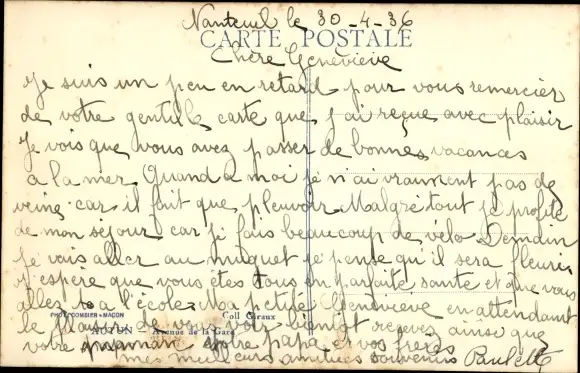 Nanteuil le 30-4-36
CARTE POSTALE
Chère Geneviève
Je suis un peu en retard pour vous remercier
de votre gentille carte que j'ai reçue avec plaisir
Je vois que vous avez passer de bonnes vacances
a la mer Quand a moi je n'ai vraiment pas de
veine car il fait que pleuvoir Malgré tout je profite
de mon séjour car je fais beaucoup de vélo Demain
je vais aller au muguet je pense qu'il sera fleuri
J'espère que vous êtes tous en parfaite santé et que vous
allez a l'école Ma petite Geneviève en attendant
PHOT. COMBIER MACON
Coll Giraux
le plaisir de vous voir bientôt recevez ainsi que
Avenue de la Gare
votre maman votre papa et vos frères
mes meilleurs amitiées souvenirs Paulette